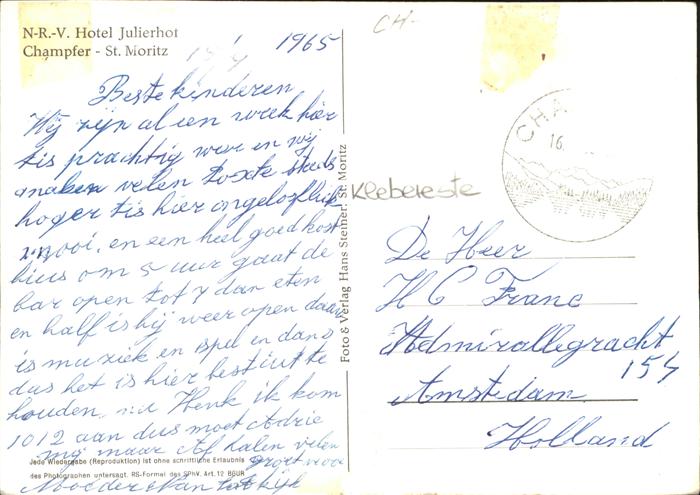 N-R.-V. Hotel Julierhof
Champfer - St. Moritz
15/4 1965
Beste kinderen
Wij zijn al een week hier
tis prachtig weer en wij
maken velen toste steds
hoger tis hier ongelooflik
mooi. en een heel goed kost
huis om 5 uur gaat de
bar open tot 7 dan eten
en half is hij weer open daar
is muziek en spel en dans
dus het is hier best uit te
houden. nu Henk ik kom
1012 aan dus moet
mij maar halen velen
groet voor
Moeder
Jede Wiedergabe (Reproduktion) ist ohne schriftliche Erlaubnis
des Photographen untersagt. RS-Formel des SPhV. Art. 12 BGUR
Foto & Verlag Hans Steiner, St. Moritz
CH-
Klebereste
CHA
16.
De Heer
H C Franc
Admirallegracht
154
Amstedam
Holland